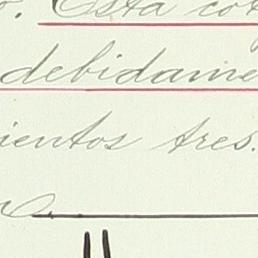 o. Esta co
debidame
ientos tres.